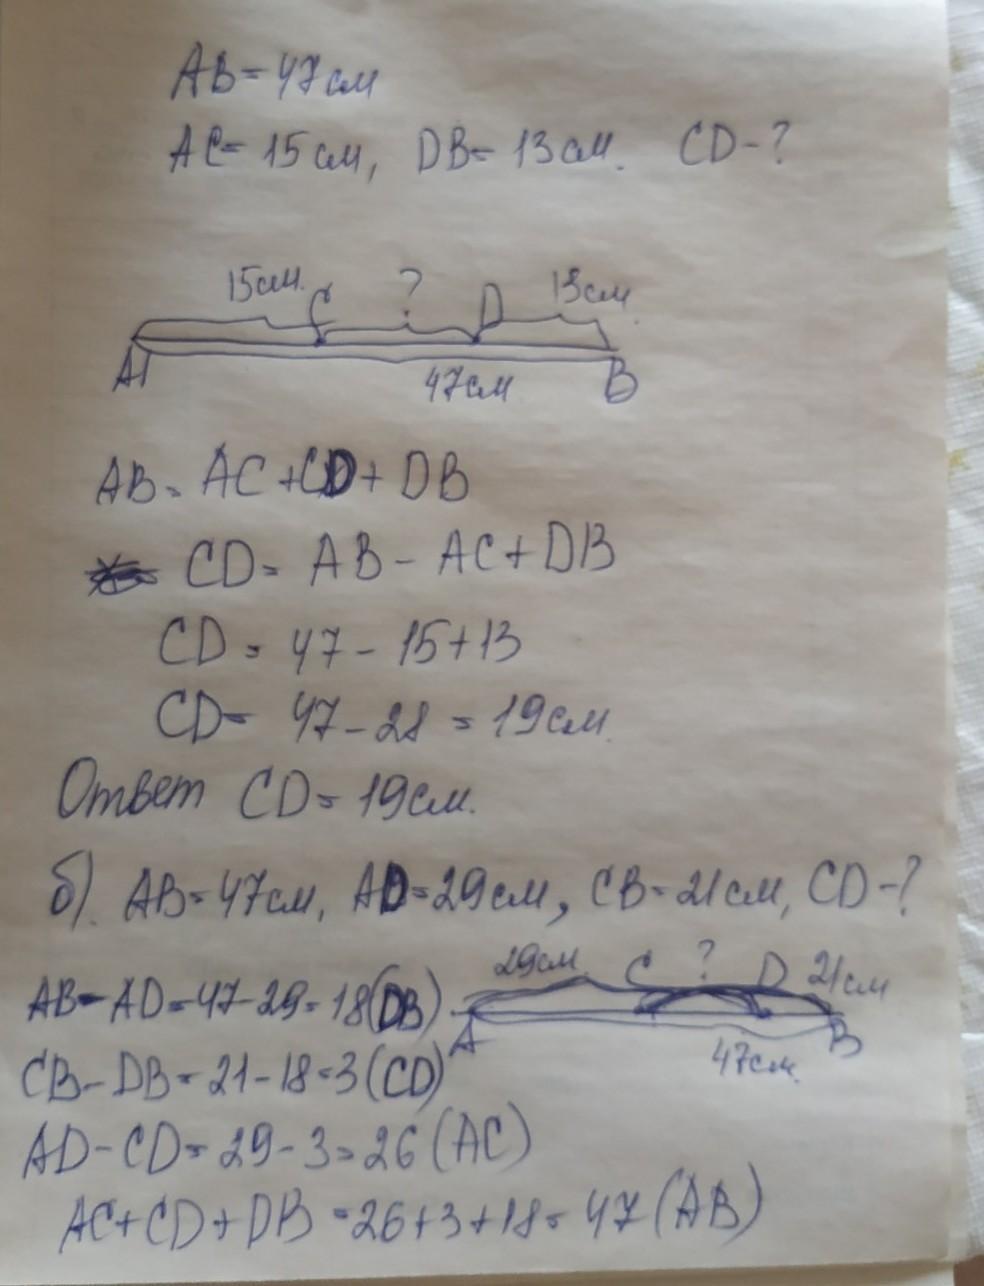 AB = 47 см
AC = 15 см, DB = 13 см. CD - ?
15 см. C ? D 13 см.
A 47 см B
AB = AC + CD + DB
CD = AB - AC + DB
CD = 47 - 15 + 13
CD = 47 - 28 = 19 см.
Ответ CD = 19 см.
б). AB = 47 см, AD = 29 см, CB = 21 см, CD - ?
29 см C ? D 21 см
AB - AD = 47 - 29 = 18 (DB)
A 47 см. B
CB - DB = 21 - 18 = 3 (CD)
AD - CD = 29 - 3 = 26 (AC)
AC + CD + DB = 26 + 3 + 18 = 47 (AB)